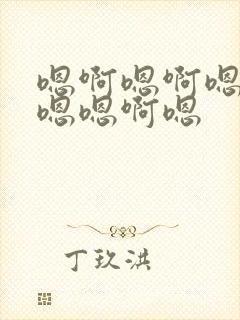 嗯啊嗯啊嗯
嗯嗯啊嗯
丁玖洪